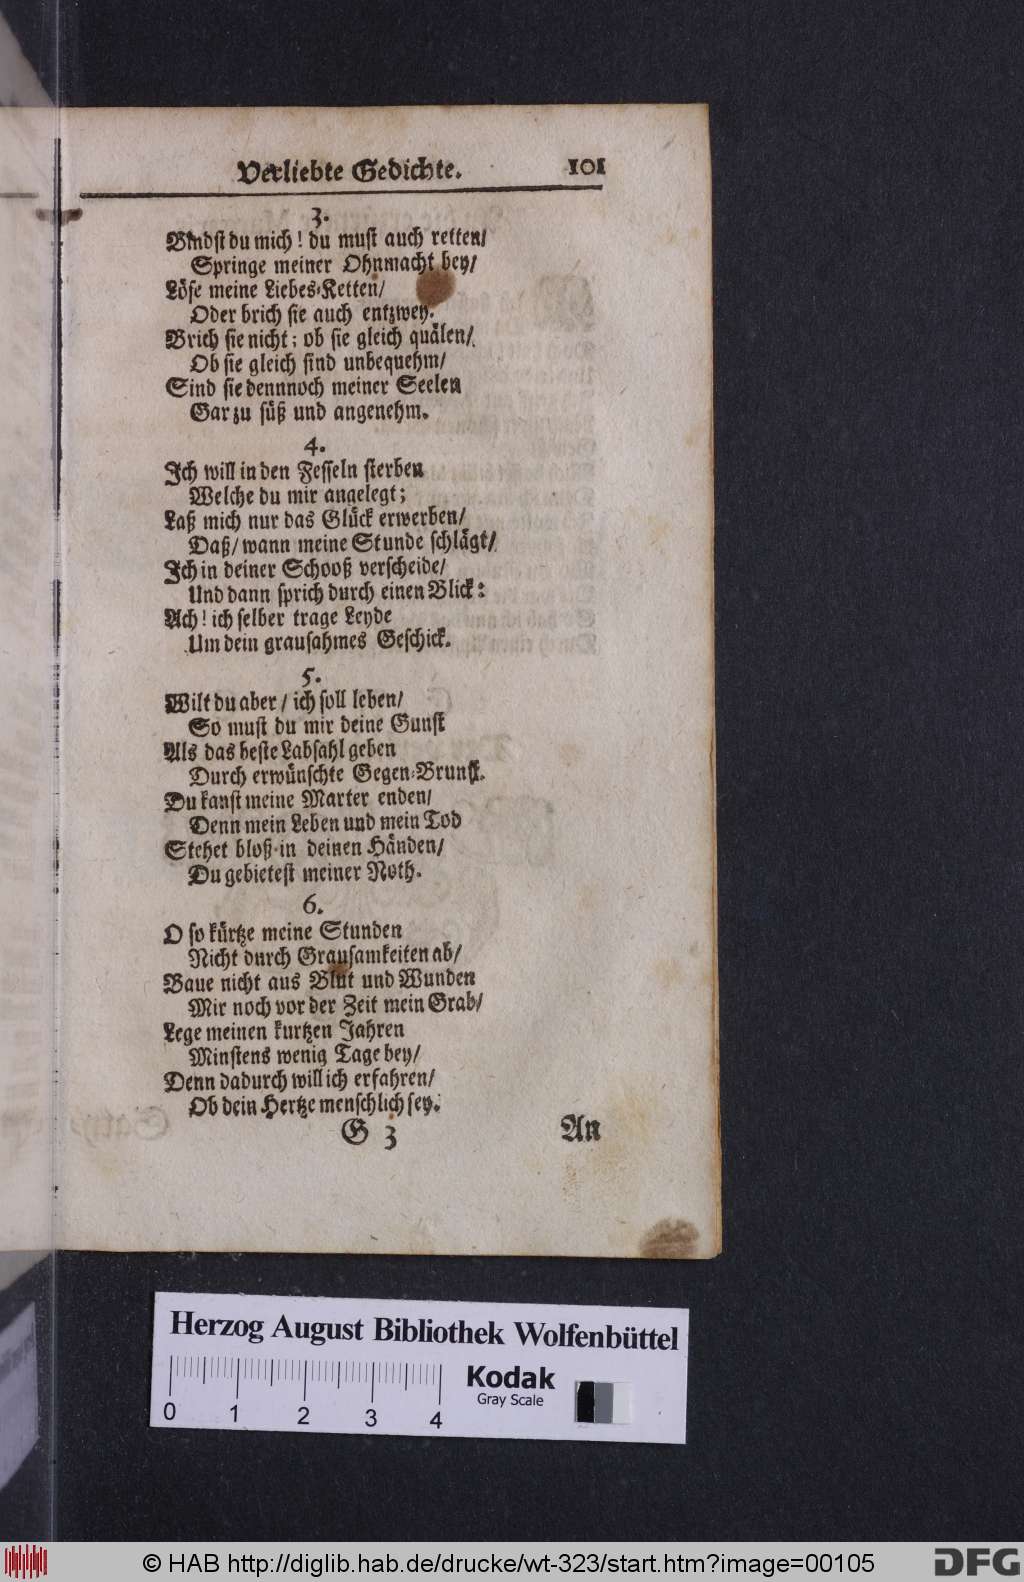 Verliebte Gedichte. 101
3.
Bindst du mich! du must auch retten/
Springe meiner Ohnmacht bey/
Löse meine Liebes-Ketten/
Oder brich sie auch entzwey.
Brich sie nicht; ob sie gleich quälen/
Ob sie gleich sind unbequehm/
Sind sie dennnoch meiner Seelen
Gar zu süß und angenehm.
4.
Ich will in den Fesseln sterben
Welche du mir angelegt;
Laß mich nur das Glück erwerben/
Daß/ wann meine Stunde schlägt/
Ich in deiner Schooß verscheide/
Und dann sprich durch einen Blick:
Ach! ich selber trage Leyde
Um dein grausahmes Geschick.
5.
Wilt du aber/ ich soll leben/
So must du mir deine Gunst
Als das beste Labsahl geben
Durch erwünschte Gegen-Brunst.
Du kanst meine Marter enden/
Denn mein Leben und mein Tod
Stehet bloß in deinen Händen/
Du gebietest meiner Noth.
6.
O so kürtze meine Stunden
Nicht durch Grausamkeiten ab/
Baue nicht aus Blut und Wunden
Mir noch vor der Zeit mein Grab/
Lege meinen kurtzen Jahren
Minstens wenig Tage bey/
Denn dadurch will ich erfahren/
Ob dein Hertze menschlich sey.
G 3 An
Herzog August Bibliothek Wolfenbüttel
Kodak
Gray Scale
0 1 2 3 4
© HAB http://diglib.hab.de/drucke/wt-323/start.htm?image=00105
DFG